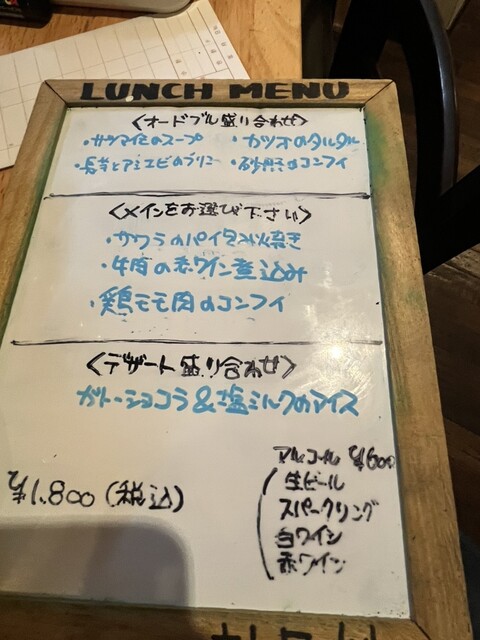 LUNCH MENU
<オードブル盛り合わせ>
・サツマイモのスープ ・カツオのタルタル
・長芋とアミエビのブリニー ・砂肝のコンフィ
<メインをお選び下さい>
・サワラのパイ包み焼き
・牛肉の赤ワイン煮込み
・鶏モモ肉のコンフィ
<デザート盛り合わせ>
ガトーショコラ&塩ミルクのアイス
アルコール ¥600
生ビール
スパークリング
白ワイン
赤ワイン
¥1.800(税込)